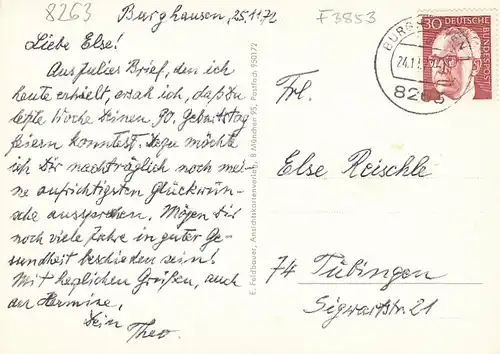 8263
Burghausen, 25.11.72
F3853
Liebe Else!
Aus Julies Brief, den ich
heute erhielt, ersah ich, daß Du
letzte Woche Deinen 90. Geburtstag
feiern konntest. Dazu möchte
ich Dir nachträglich noch mei-
ne aufrichtigsten Glückwün-
sche aussprechen. Mögen Dir
noch viele Jahre in guter Ge-
sundheit beschieden sein!
Mit herzlichen Grüßen, auch
der Hermine,
Dein Theo.
E. Feldbauer, Ansichtskartenverlag, 8 München 95, Postfach 950172
30 DEUTSCHE BUNDESPOST
Frl.
Else Reischle
74 Tübingen
Sigwartstr. 21